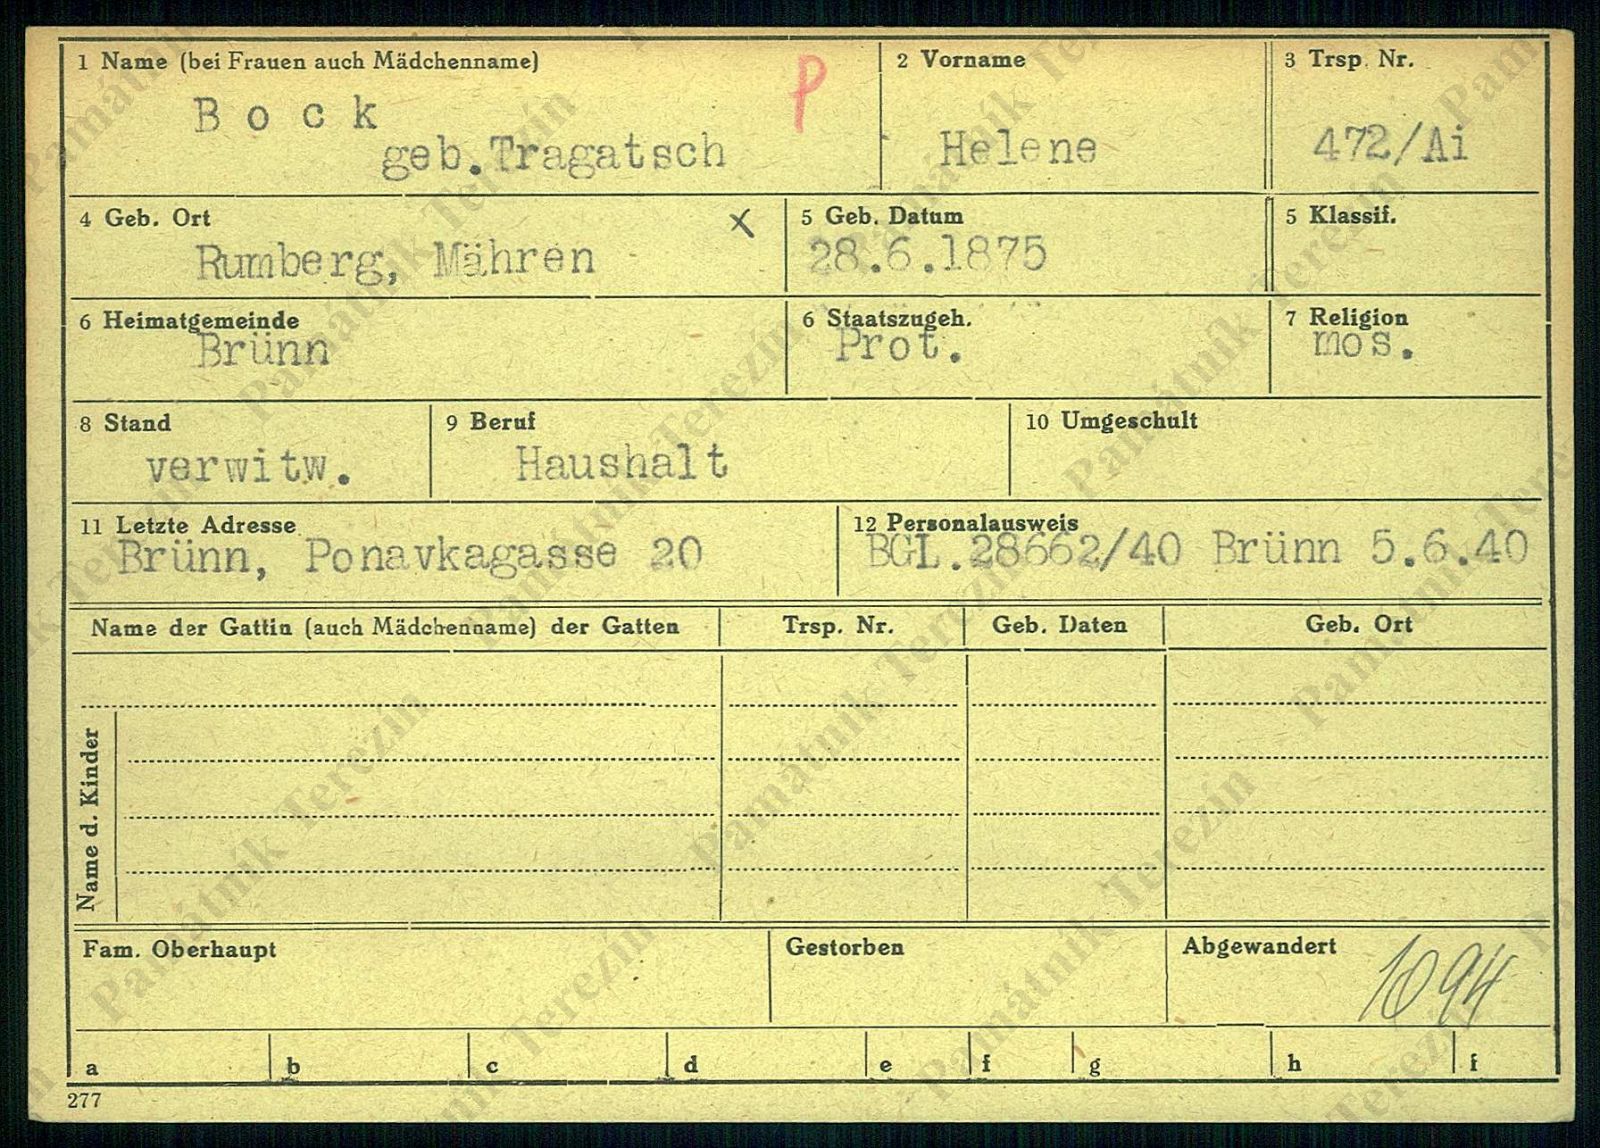 1 Name (bei Frauen auch Mädchenname)
Bock
geb.Tragatsch
P
2 Vorname
Helene
3 Trsp. Nr.
472/Ai
4 Geb. Ort
Rumberg, Mähren
x
5 Geb. Datum
28.6.1875
5 Klassif.
6 Heimatgemeinde
Brünn
6 Staatszugeh.
Prot.
7 Religion
mos.
8 Stand
verwitw.
9 Beruf
Haushalt
10 Umgeschult
11 Letzte Adresse
Brünn, Ponavkagasse 20
12 Personalausweis
BGL.28662/40 Brünn 5.6.40
Name der Gattin (auch Mädchenname) der Gatten
Trsp. Nr.
Geb. Daten
Geb. Ort
Name d. Kinder
Fam. Oberhaupt
Gestorben
Abgewandert
1094
a b c d e f g h f
277
Památník Terezín